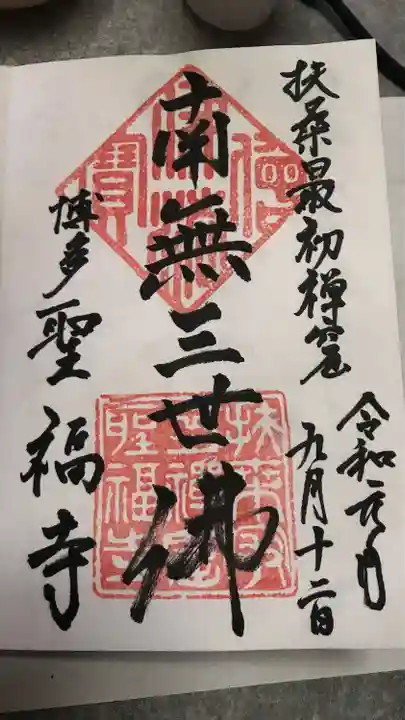 扶桑最初禅窟
令和元年
九月十二日
南無三世佛
博多聖福寺